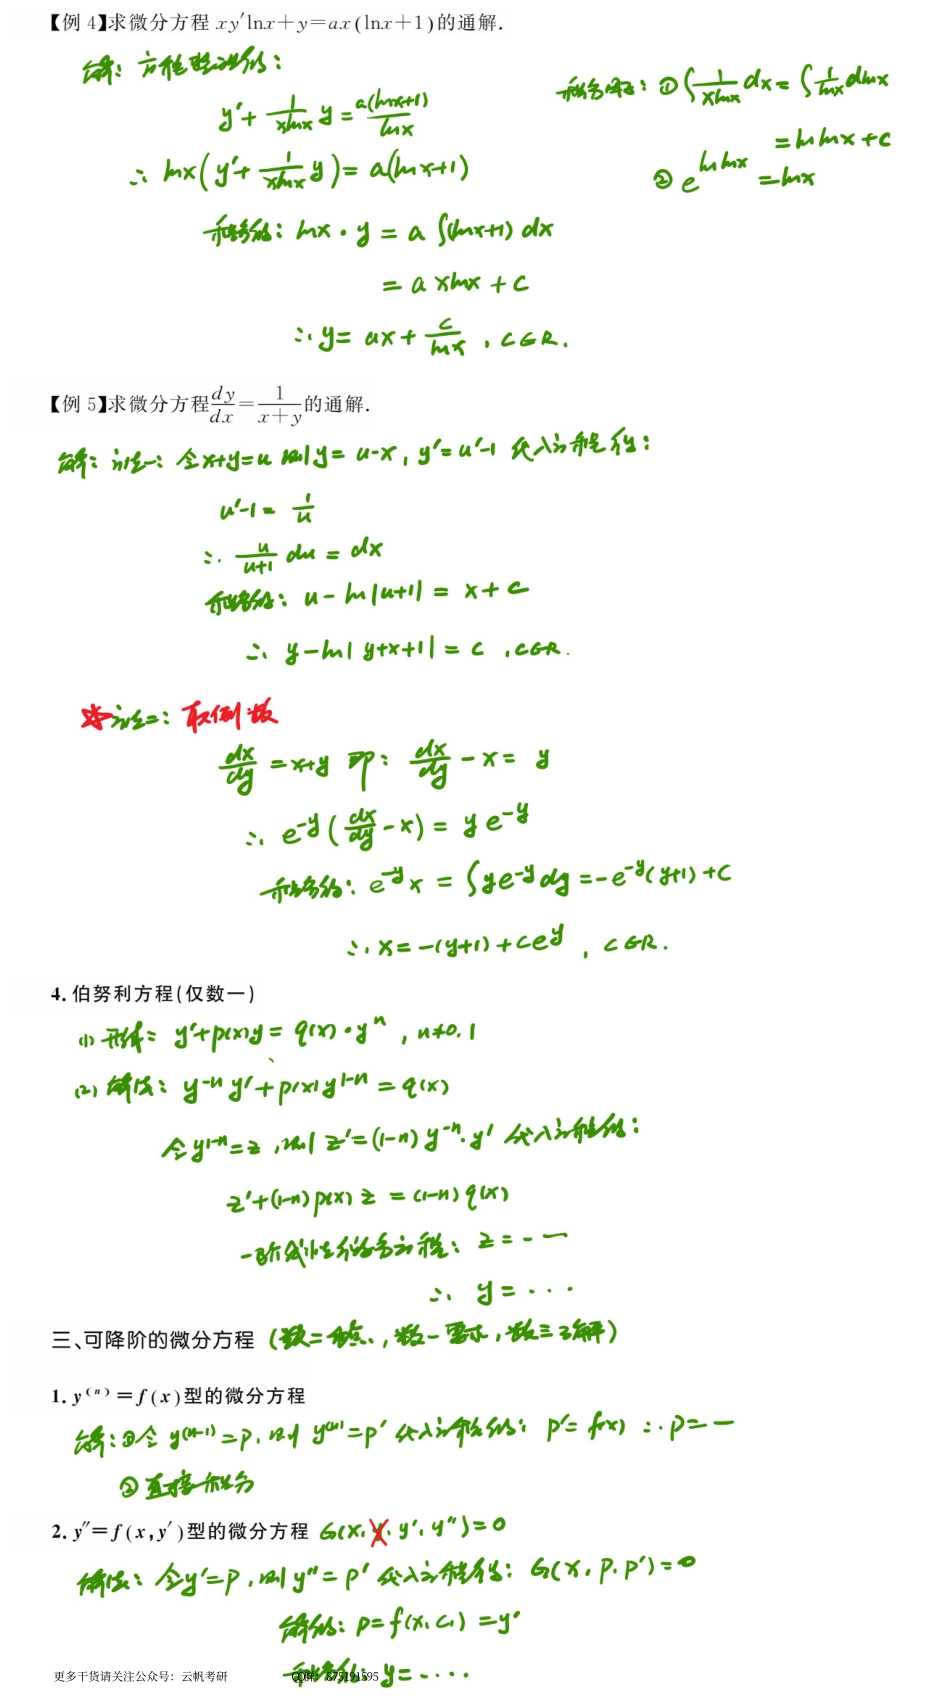 【例 4】求微分方程 xy′lnx+y=ax(lnx+1)的通解.
解: 方程整理得:
y′+ 1/(xlnx) y = a(lnx+1)/lnx
积分因子: ① ∫ 1/(xlnx) dx = ∫ 1/lnx dlnx
= ln lnx + C
∴ lnx(y′+ 1/(xlnx) y) = a(lnx+1)
② e^(ln lnx) = lnx
积分得: lnx · y = a ∫(lnx+1) dx
= a xlnx + C
∴ y= ax + C/lnx , C∈R.
【例 5】求微分方程 dy/dx = 1/(x+y) 的通解.
解: 法一: 令x+y=u 则y= u-x, y′=u′-1 代入方程得:
u′-1 = 1/u
∴ u/(u+1) du = dx
积分得: u - ln|u+1| = x + C
∴ y-ln|y+x+1| = C , C∈R.
法二: 取倒数
dx/dy = x+y 即: dx/dy - x = y
∴ e^(-y) (dx/dy - x) = y e^(-y)
积分得: e^(-y) x = ∫ye^(-y) dy = -e^(-y)(y+1) + C
∴ x = -(y+1) + Ce^y , C∈R.
4. 伯努利方程(仅数一)
(1) 形式: y′+p(x)y = q(x)·y^n , n≠0,1
(2) 解法: y^(-n) y′+ p(x)y^(1-n) = q(x)
令y^(1-n) = z , 则 z′=(1-n) y^(-n)·y′ 代入方程得:
z′+(1-n)p(x) z = (1-n) q(x)
一阶线性微分方程: z = - —
∴ y = · · ·
三、可降阶的微分方程 (数二 , 数一 , 数三了解)
1. y⁽ⁿ⁾=f(x)型的微分方程
解: ①令 y^(n-1) = p, 则 y^(n) = p′ 代入方程得: p′= f(x) ∴ p = —
② 直接积分
2. y″=f(x,y′)型的微分方程 G(x, y, y′, y″)=0
解法: 令y′=p, 则y″= p′ 代入方程得: G(x, p, p′)=0
解得: p=f(x, C₁) = y′
更多干货请关注公众号: 云帆考研 QQ群: 875191595 积分得: y= - · · ·